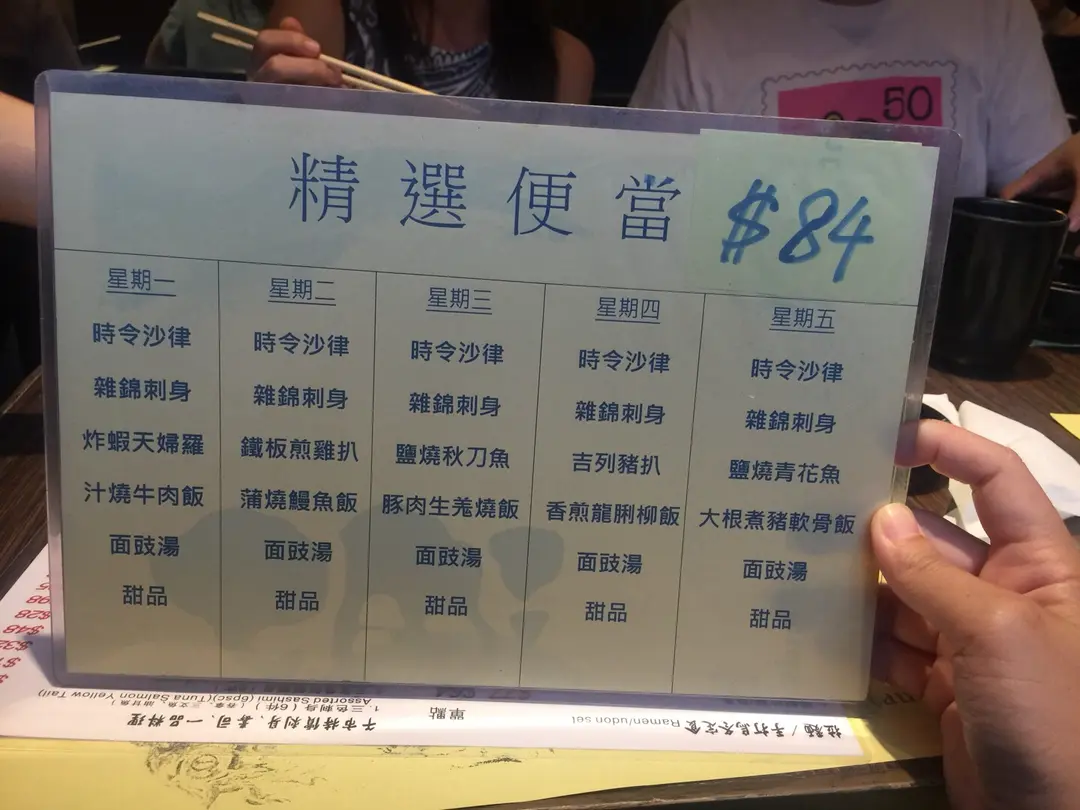 精選便當
$84
星期一
時令沙律
雜錦刺身
炸蝦天婦羅
汁燒牛肉飯
面豉湯
甜品
星期二
時令沙律
雜錦刺身
鐵板煎雞扒
蒲燒鰻魚飯
面豉湯
甜品
星期三
時令沙律
雜錦刺身
鹽燒秋刀魚
豚肉生羗燒飯
面豉湯
甜品
星期四
時令沙律
雜錦刺身
吉列豬扒
香煎龍脷柳飯
面豉湯
甜品
星期五
時令沙律
雜錦刺身
鹽燒青花魚
大根煮豬軟骨飯
面豉湯
甜品
50
Assorted Sashimi (6psc)(Tuna Salmon Yellow Tail)
1.三色刺身（6件）
單點
Ramen/udon set
$28
$48